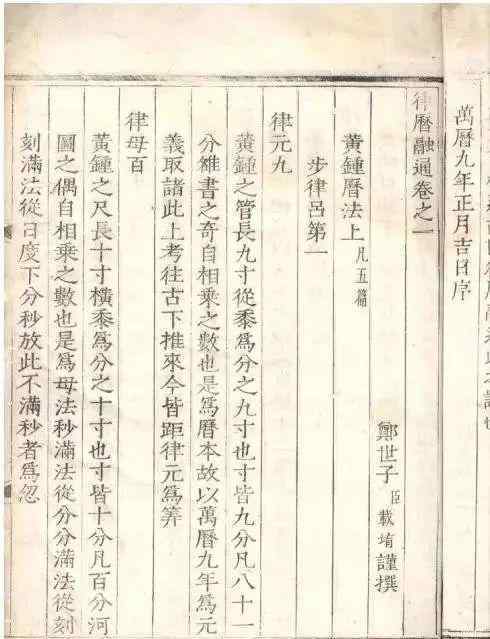 萬曆九年正月吉日序
律曆融通卷之一
鄭世子臣載堉謹撰
黃鍾曆法上凡五篇
步律呂第一
律元九
黃鍾之管長九寸從黍爲分之九寸也寸皆九分凡八十一
分雒書之奇自相乘之數也是爲曆本故以萬曆九年爲元
義取諸此上考往古下推來今皆距律元爲筭
律母百
黃鍾之尺長十寸橫黍爲分之十寸也寸皆十分凡百分河
圖之偶自相乘之數也是爲母法秒滿法從分分滿法從刻
刻滿法從日度下分秒放此不滿秒者爲忽